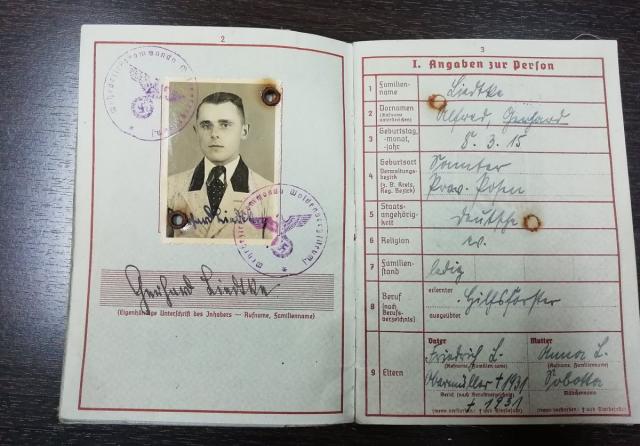 2
Gerhard Liedtke
(Eigenhändige Unterschrift des Inhabers — Rufname, Familienname)
3
I. Angaben zur Person
1 Familienname Liedtke
2 Vornamen (Rufname unterstreichen) Alfred, Gerhard
3 Geburtstag, -monat, -jahr 8. 3. 15
4 Geburtsort Verwaltungsbezirk (z. B. Kreis, Reg. Bezirk) Samter
Prov. Posen
5 Staatsangehörigkeit deutsche
6 Religion ev.
7 Familienstand ledig
8 Beruf (nach Berufsverzeichnis) erlernter Hilfsförster
ausgeübter
9 Eltern Vater Mutter
Friedrich L. Anna L.
(Rufname, Familienname) (Rufname, Familienname)
Obermüller † 1931 Sobotta
Beruf (nach Berufsverzeichnis) Mädchenname
† 1931
(wenn verstorben: † und Sterbejahr) (wenn verstorben: † und Sterbejahr)